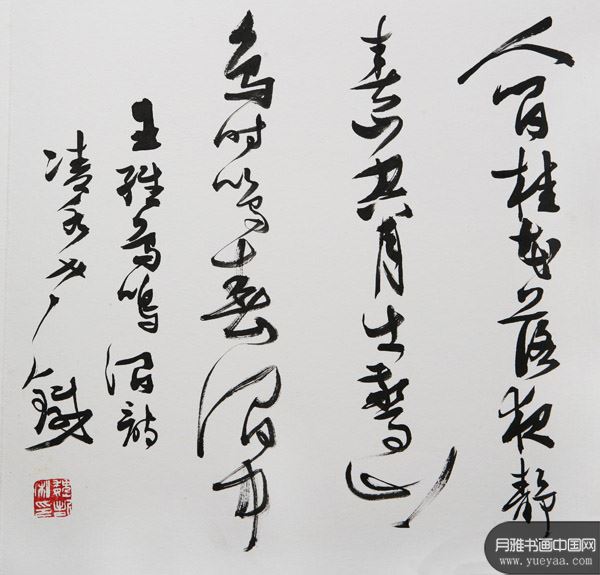 人闲桂花落夜静
春山空月出惊山
鸟时鸣春涧中
王维鸟鸣涧诗
月雅书画中国网
www.yueyaa.com